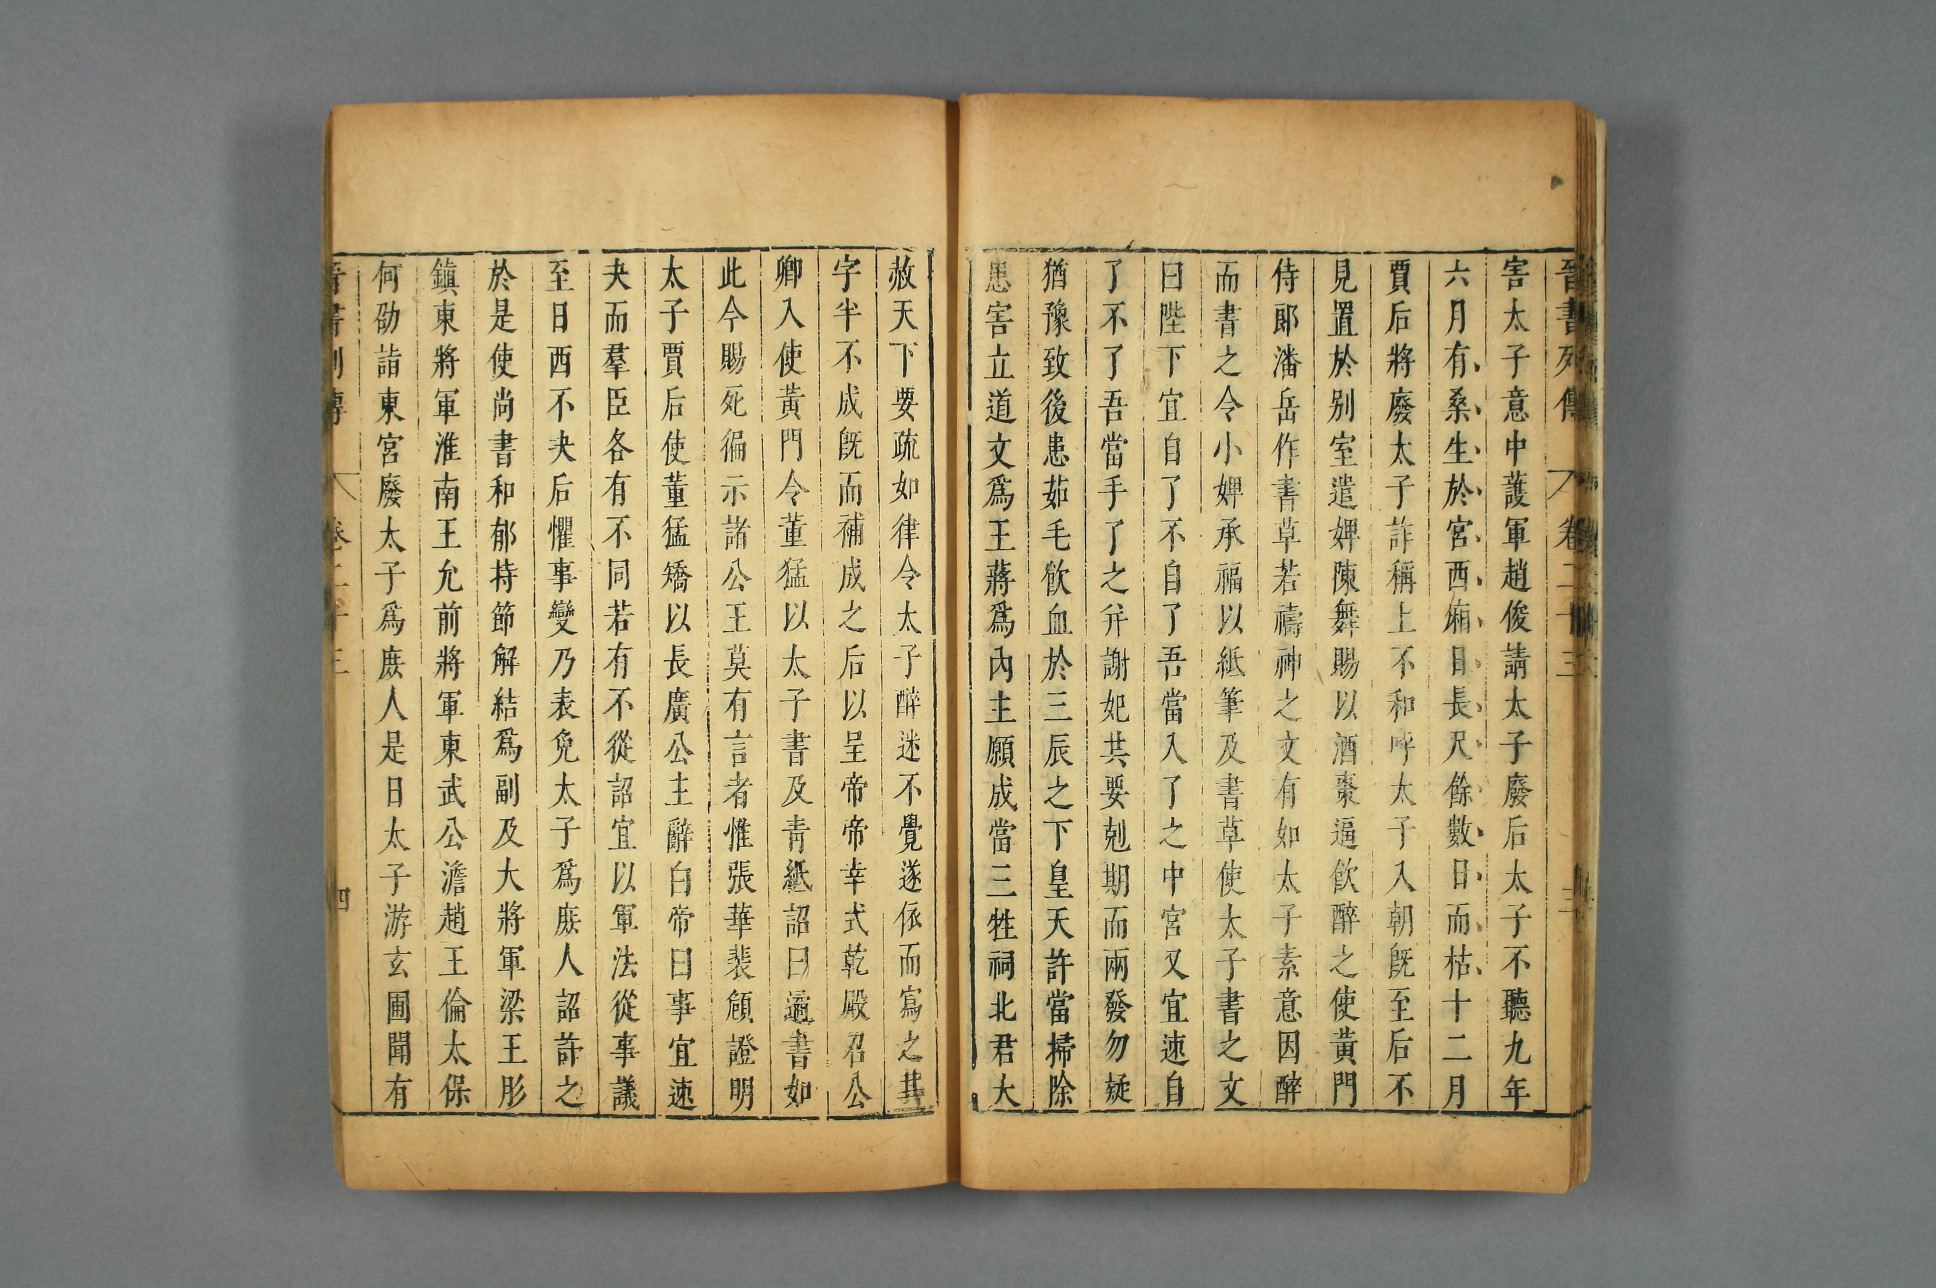 晉書列傳 卷二十三 三
害太子意中護軍趙俊請太子廢后太子不聽九年
六月有桑生於宮西廂日長尺餘數日而枯十二月
賈后將廢太子詐稱上不和呼太子入朝旣至后不
見置於别室遣婢陳舞賜以酒棗逼飮醉之使黃門
侍郎潘岳作書草若禱神之文有如太子素意因醉
而書之令小婢承福以紙筆及書草使太子書之文
曰陛下宜自了不自了吾當入了之中宮又宜速自
了不了吾當手了之幷謝妃共要剋期而兩發勿疑
猶豫致後患茹毛飮血於三辰之下皇天許當掃除
患害立道文爲王蔣爲內主願成當三牲祠北君大
赦天下要疏如律令太子醉迷不覺遂依而寫之其
字半不成旣而補成之后以呈帝帝幸式乾殿召公
卿入使黃門令董猛以太子書及靑紙詔曰遹書如
此今賜死徧示諸公王莫有言者惟張華裴頠證明
太子賈后使董猛矯以長廣公主辭白帝曰事宜速
夬而羣臣各有不同若有不從詔宜以軍法從事議
至日西不夬后懼事變乃表免太子爲庶人詔許之
於是使尚書和郁持節解結爲副及大將軍梁王肜
鎭東將軍淮南王允前將軍東武公澹趙王倫太保
何劭詣東宮廢太子爲庶人是日太子游玄圃聞有
晉書列傳 卷二十三 四